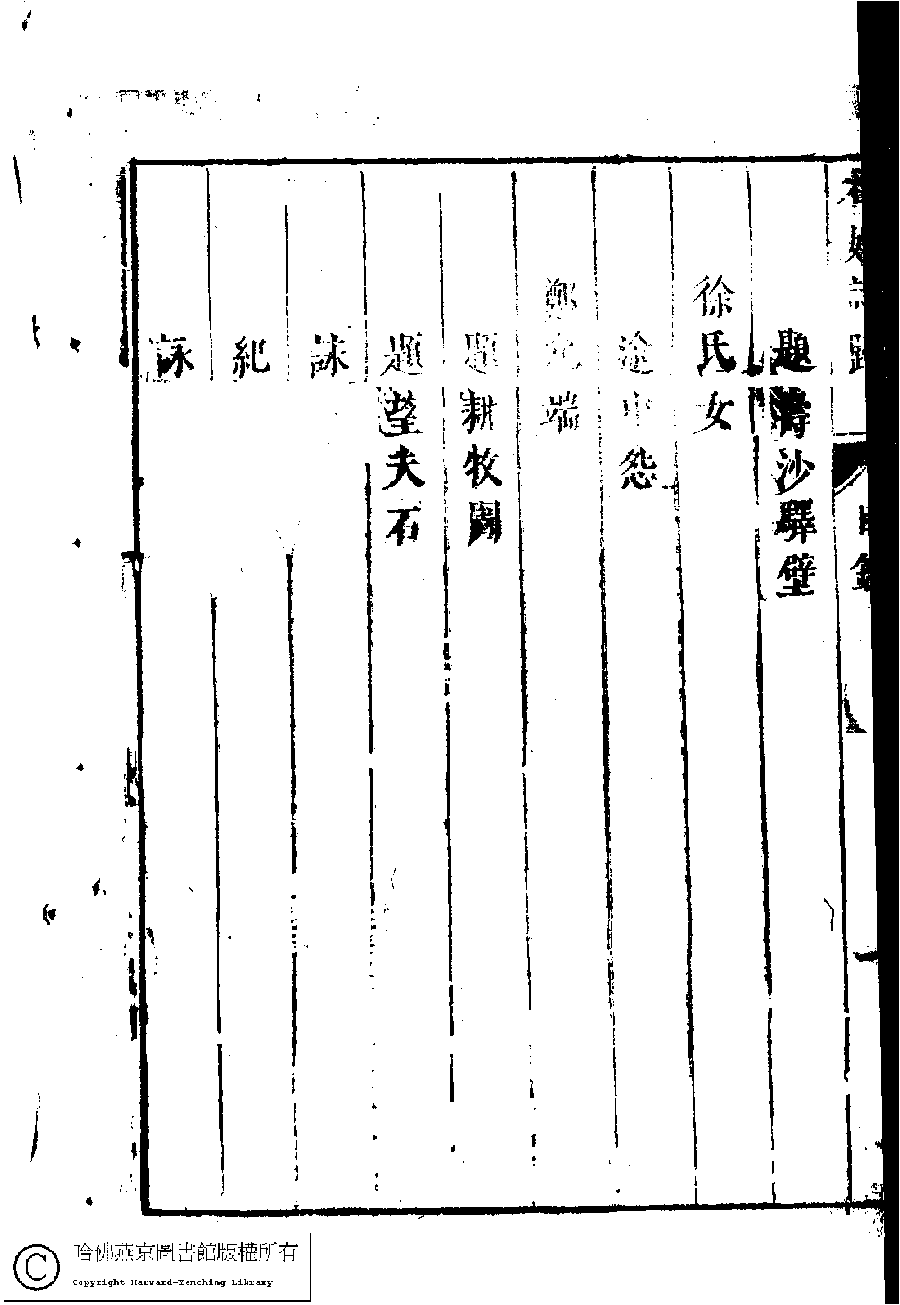 題濤沙驛壁
徐氏女
途中怨
鄭允端
題耕牧圖
題望夫石
紀
詠
哈佛燕京圖書館版權所有
Copyright Harvard-Yenching Library